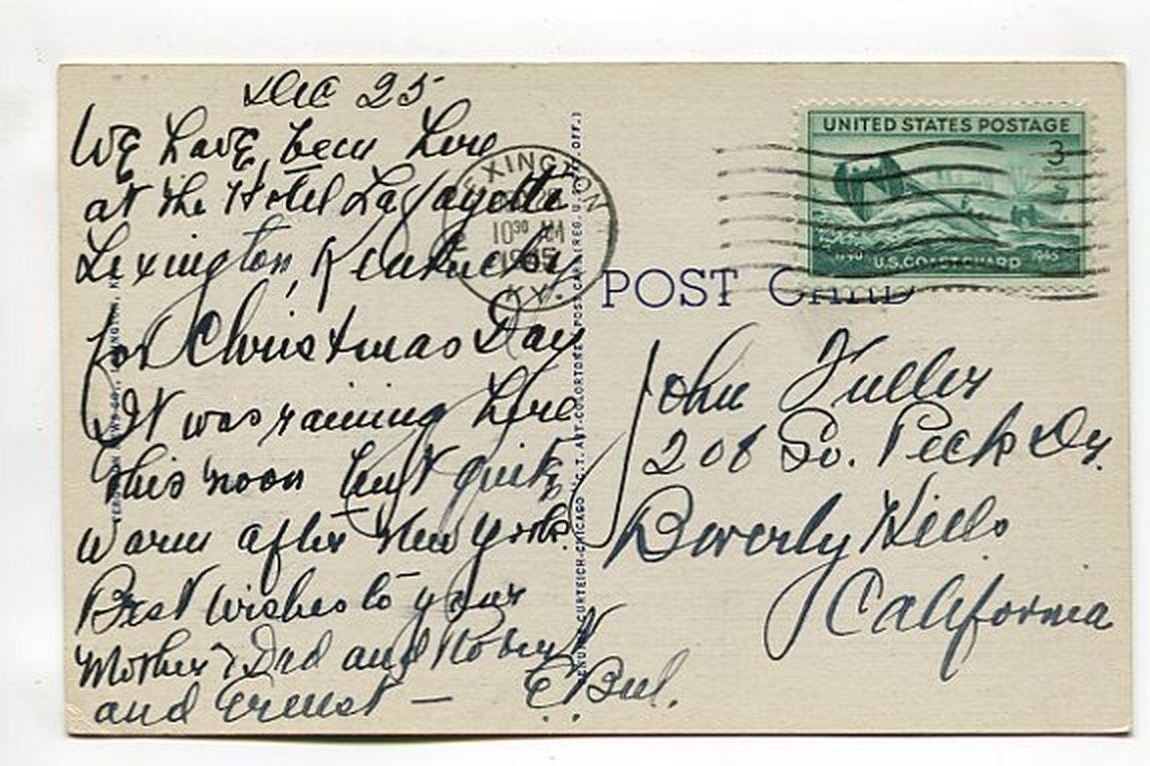 Dec 25
We have been here
at the Hotel Lafayette
Lexington, Kentucky
for Christmas Day
It was raining here
this noon but quite
warm after New York.
Best wishes to your
Mother & Dad and Robert
and Ernest —
E.
LEXINGTON
10 30 AM
1945
KY.
UNITED STATES POSTAGE
3
1790 U.S. COAST GUARD 1945
POST CARD
John Fuller
208 So. Peck Dr.
Beverly Hills
California
GENUINE CURTEICH-CHICAGO "C.T. ART-COLORTONE" POST CARD (REG. U.S. PAT. OFF.)